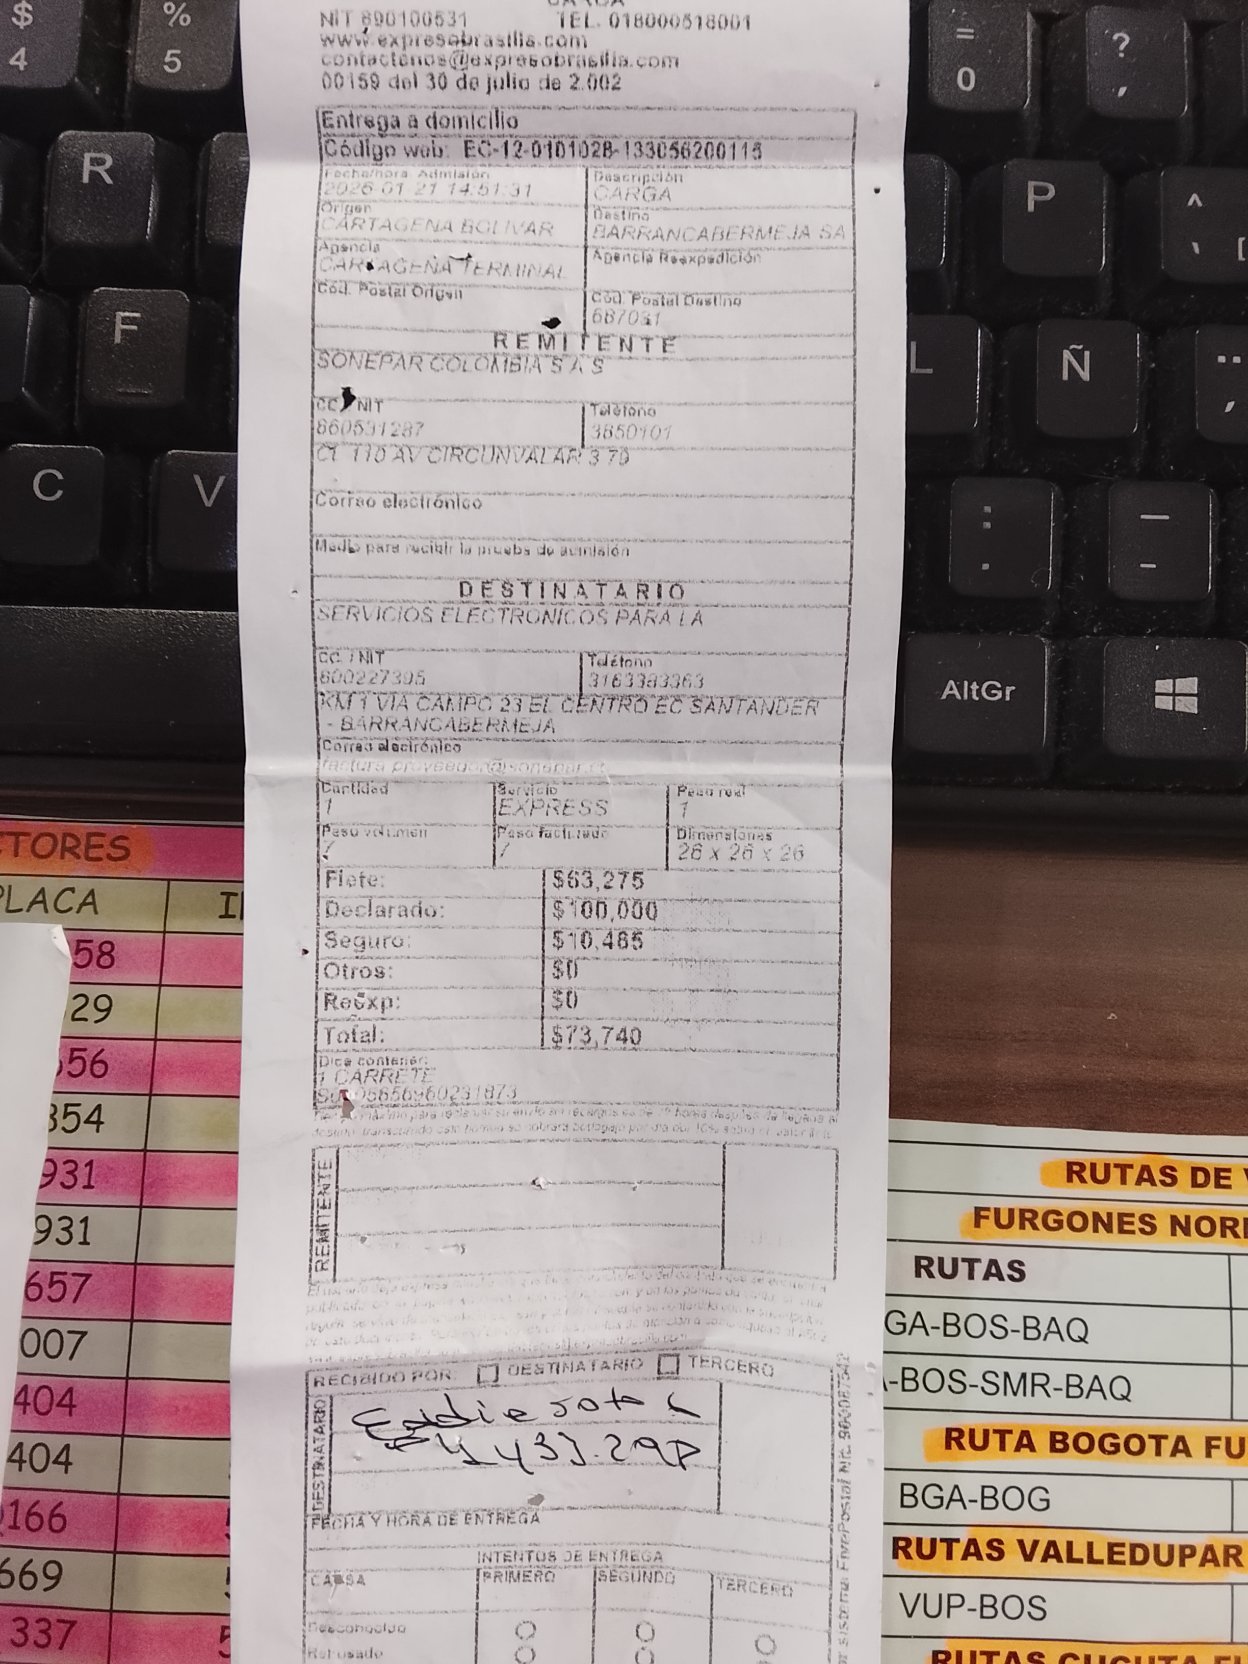 NIT 890100531 TEL. 018000518001
www.expresobrasilia.com
contactenos@expresobrasilia.com
00159 del 30 de julio de 2.002
Entrega a domicilio
Código web: EC-12-0101028-133056200115
Fecha/hora Admisión Descripción
2026-01-21 14:51:31 CARGA
Origen Destino
CARTAGENA BOLIVAR BARRANCABERMEJA SA
Agencia Agencia Reexpedición
CARTAGENA TERMINAL
Cód. Postal Origen Cód. Postal Destino
687031
REMITENTE
SONEPAR COLOMBIA S A S
CC / NIT Teléfono
860531287 3850101
CL 110 AV CIRCUNVALAR 3 79
Correo electrónico
Medio para recibir la prueba de admisión
DESTINATARIO
SERVICIOS ELECTRONICOS PARA LA
CC / NIT Teléfono
800227395 3163383363
KM 1 VIA CAMPO 23 EL CENTRO EC SANTANDER
- BARRANCABERMEJA
Correo electrónico
Cantidad Servicio Peso real
1 EXPRESS 1
Peso volumen Peso facturado Dimensiones
7 7 26 x 26 x 26
Flete: $63,275
Declarado: $100,000
Seguro: $10,465
Otros: $0
Reexp: $0
Total: $73,740
Dice contener:
1 CARRETE
REMITENTE
RECIBIDO POR: DESTINATARIO TERCERO
DESTINATARIO
FECHA Y HORA DE ENTREGA
INTENTOS DE ENTREGA
CAUSA PRIMERO SEGUNDO TERCERO
Desconocido
Rehusado
CTORES
PLACA
58
29
656
354
931
931
657
007
404
404
0166
669
337
RUTAS DE
FURGONES NOR
RUTAS
GA-BOS-BAQ
-BOS-SMR-BAQ
RUTA BOGOTA FU
BGA-BOG
RUTAS VALLEDUPAR
VUP-BOS
RUTAS CUCUTA
$ 4
% 5
= 0
? ,
R
P
^
F
L
Ñ
C
V
: .
_ -
AltGr